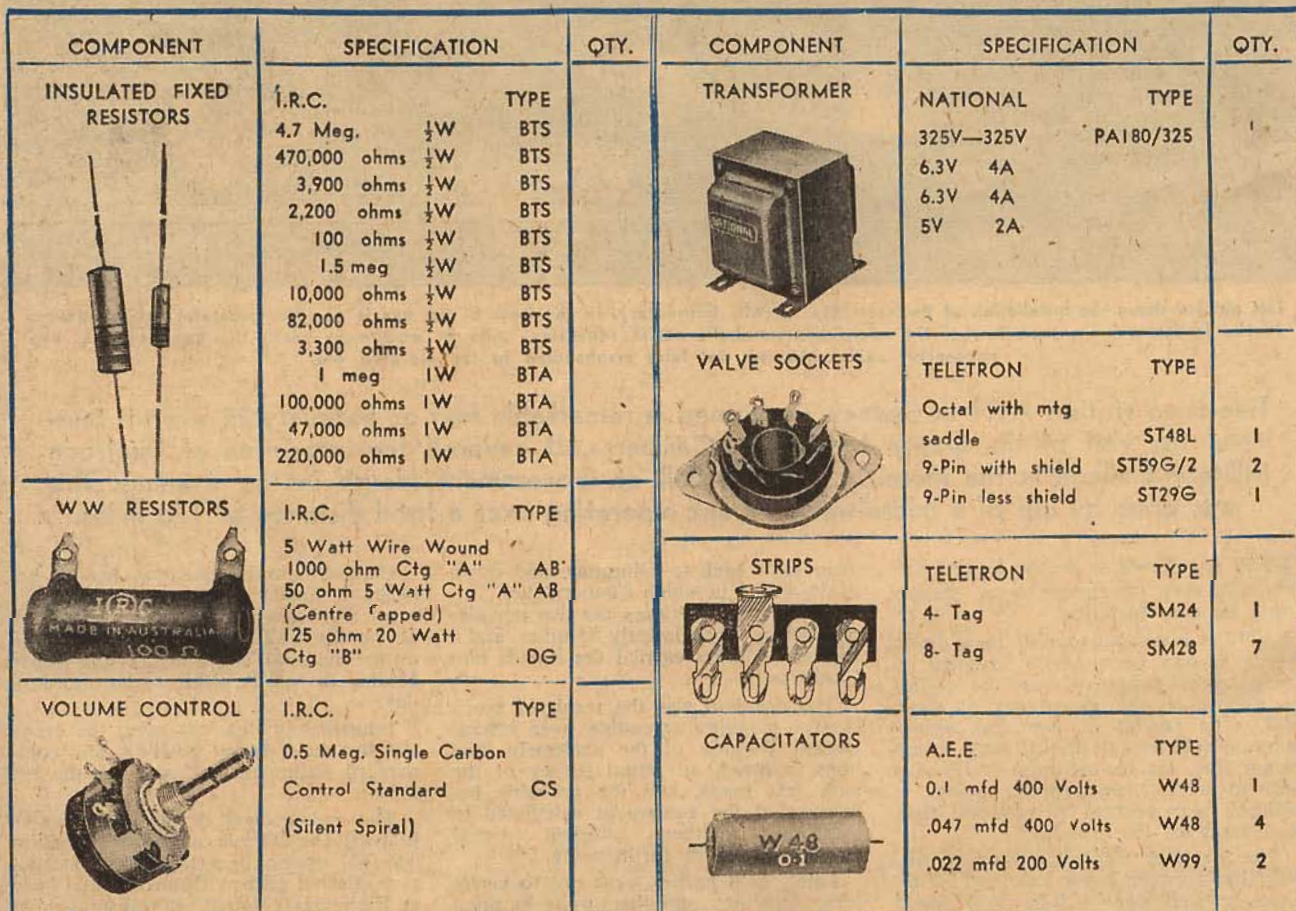 COMPONENT SPECIFICATION QTY.
INSULATED FIXED
RESISTORS
I.R.C. TYPE
4.7 Meg. ½W BTS
470,000 ohms ½W BTS
3,900 ohms ½W BTS
2,200 ohms ½W BTS
100 ohms ½W BTS
1.5 meg ½W BTS
10,000 ohms ½W BTS
82,000 ohms ½W BTS
3,300 ohms ½W BTS
1 meg 1W BTA
100,000 ohms 1W BTA
47,000 ohms 1W BTA
220,000 ohms 1W BTA
WW RESISTORS
IRC
MADE IN AUSTRALIA
100 Ω
I.R.C. TYPE
5 Watt Wire Wound
1000 ohm Ctg "A" AB
50 ohm 5 Watt Ctg "A" AB
(Centre Tapped)
125 ohm 20 Watt
Ctg "B" DG
VOLUME CONTROL
I.R.C. TYPE
0.5 Meg. Single Carbon
Control Standard CS
(Silent Spiral)
COMPONENT SPECIFICATION QTY.
TRANSFORMER
NATIONAL
NATIONAL TYPE
325V—325V PA180/325 1
6.3V 4A
6.3V 4A
5V 2A
VALVE SOCKETS
TELETRON TYPE
Octal with mtg
saddle ST48L 1
9-Pin with shield ST59G/2 2
9-Pin less shield ST29G 1
STRIPS
TELETRON TYPE
4- Tag SM24 1
8- Tag SM28 7
CAPACITATORS
W48
0.1
A.E.E. TYPE
0.1 mfd 400 Volts W48 1
.047 mfd 400 Volts W48 4
.022 mfd 200 Volts W99 2